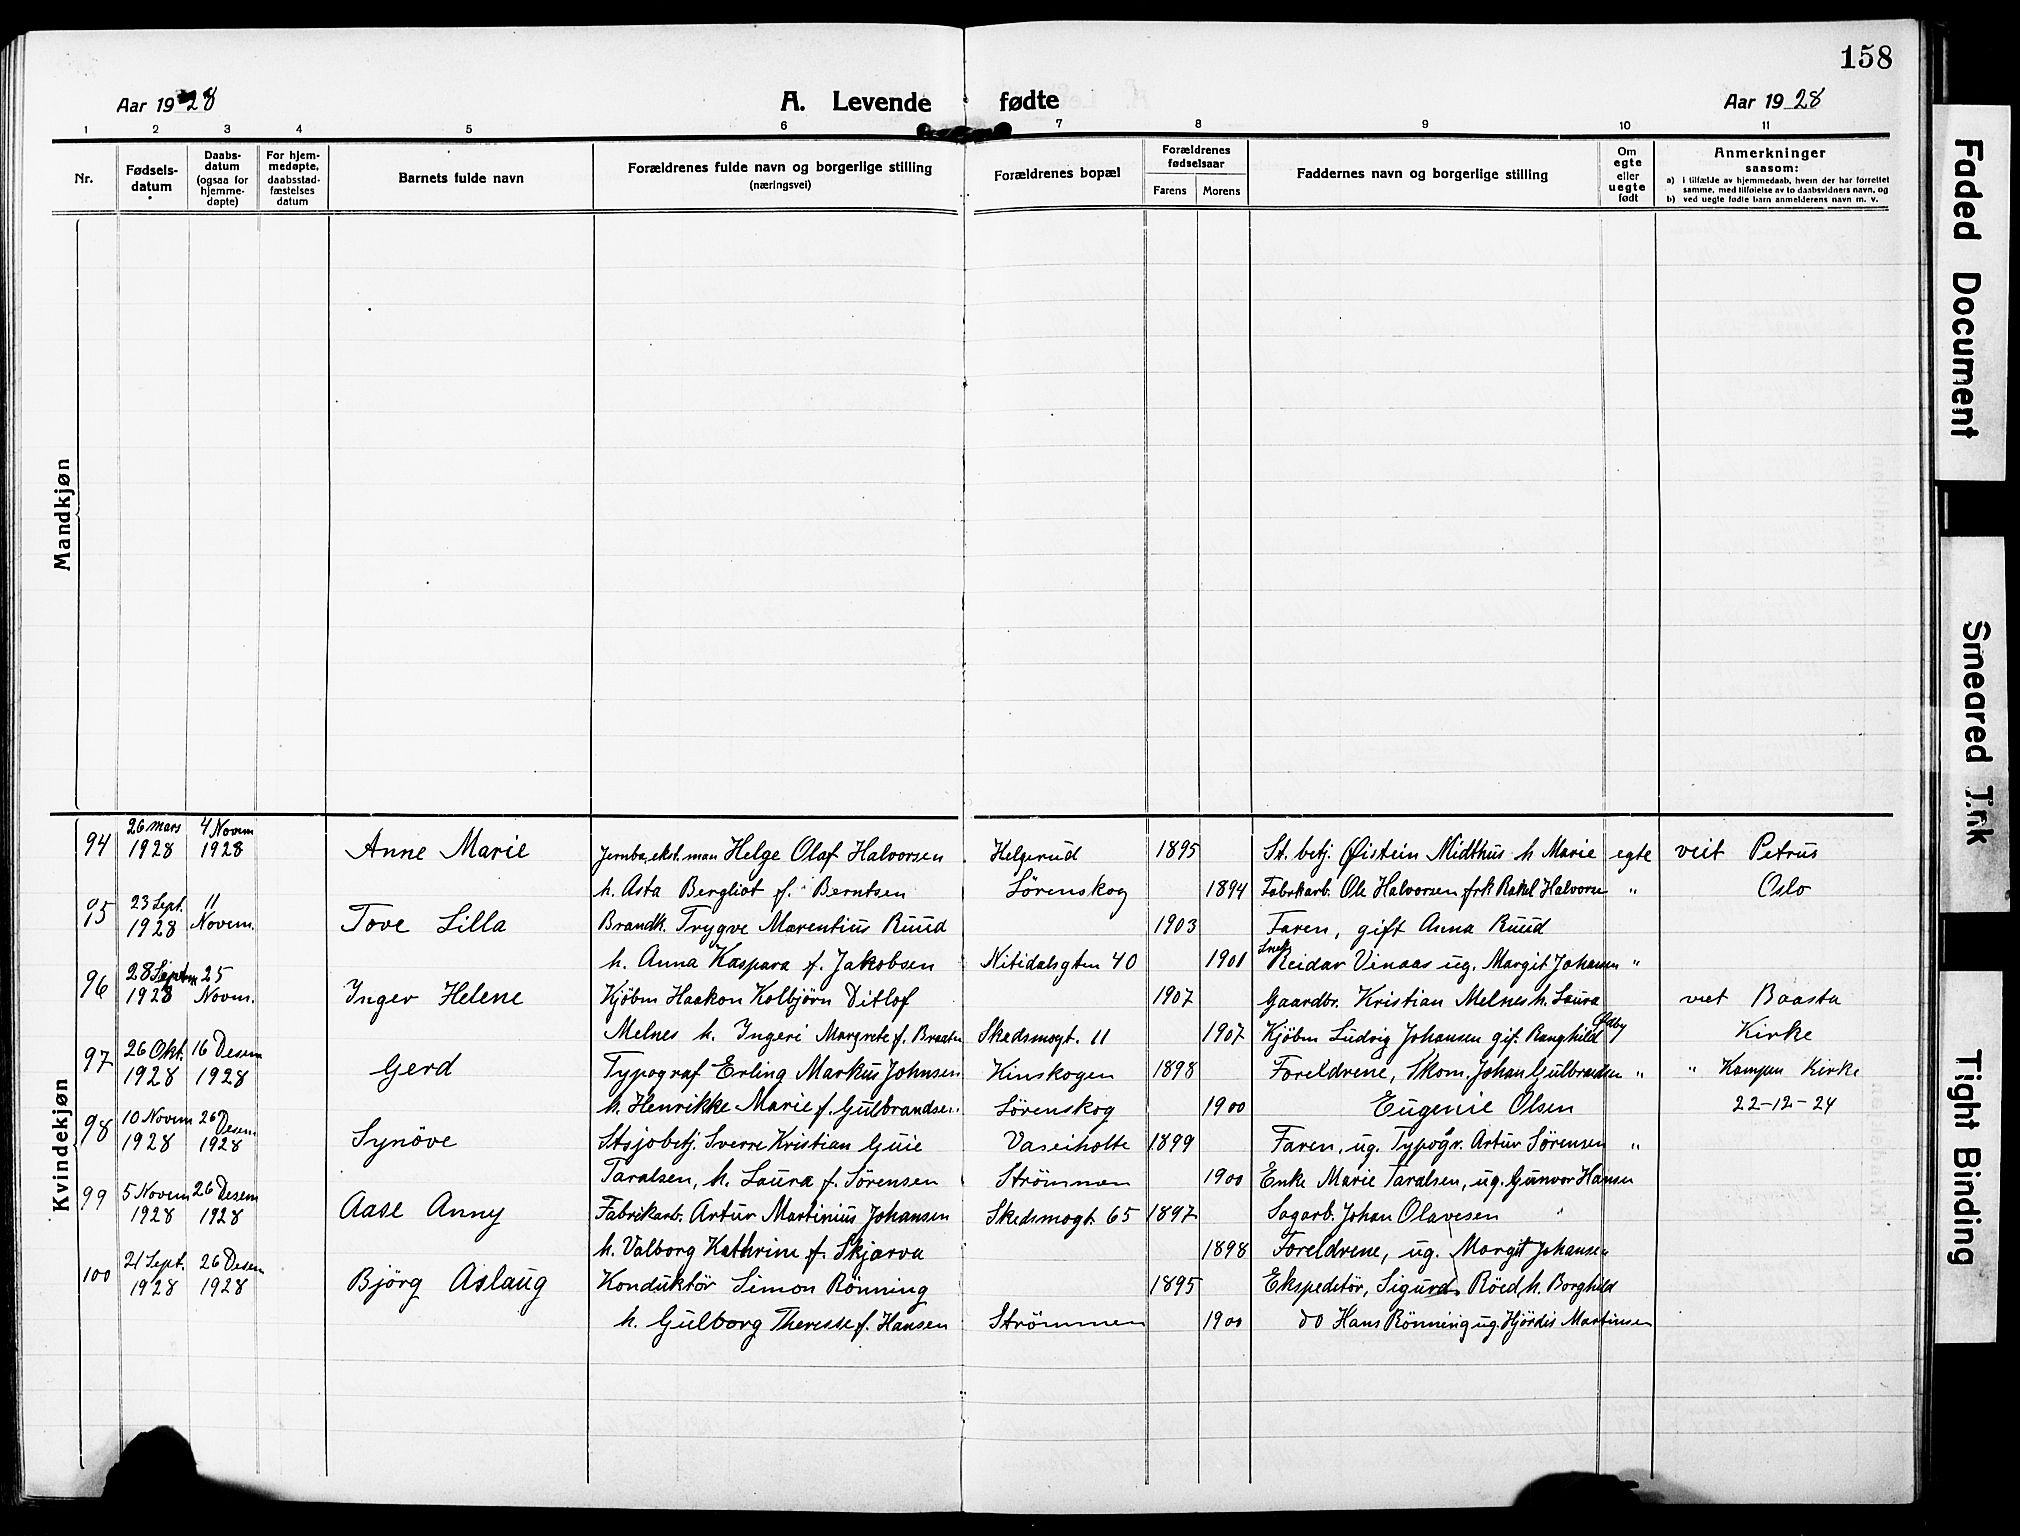 158
Aar 1928 A. Levende fødte Aar 1928
1 2 3 4 5 6 7 8 9 10 11
Nr.
Fødsels-
datum
Daabs-
datum
(ogsaa for
hjemme-
døpte)
For hjem-
medøpte,
daabsstad-
fæstelses
datum
Barnets fulde navn
Forældrenes fulde navn og borgerlige stilling
(næringsvei)
Forældrenes bopæl
Forældrenes
fødselsaar
Farens Morens
Faddernes navn og borgerlige stilling
Om
egte
eller
uegte
født
Anmerkninger
saasom:
a) i tilfælde av hjemmedaab, hvem der har forrettet
samme, med tilføielse av to daabsvidners navn, og
b) ved uegte fødte barn anmelderens navn m. v.
Mandkjøn
Kvindekjøn
94 26 mars 1928 4 Novem 1928 Anne Marie Jernba. ekst. man Helge Olaf Halvorsen Helgerud 1895 St. betj. Øistein Midthus h Marie egte veit Petrus
h. Asta Bergliot f. Berntsen Lörenskog 1894 Fabrkarb. Ole Halvorsen frk Rakel Halvorsn " Oslo
95 23 Sept. 1928 11 Novem. Tove Lilla Brandk. Trygve Marentius Ruud 1903 Faren, gift Anna Ruud
h. Anna Kaspara f. Jakobsen Nitidalsgten 40 1901 Snek Reidar Vinaas ug. Margit Johansen "
96 28 Septbm 1928 25 Novm. Inger Helene Kjöbm Haakon Kolbjörn Ditlof 1907 Gaardbr. Kristian Melnes h. Laura viet Baasta
Melnes h. Ingeri Margrete f. Braatn Skedsmogt. 11 1907 Kjöbm Ludvig Johansen gif. Ranghild Ødby Kirke
97 26 Okt. 1928 16 Desem 1928 Gerd Typograf Erling Markus Johnsen Kinskogen 1898 Foreldrene, Skom. Johan Gulbrandsen " " Kampen Kirke
h. Henrikke Marie f. Gulbrandsen. Lörenskog 1900 Eugenie Olsen 22-12-24
98 10 Novem 1928 26 Desem 1928 Synöve Stsjobetj. Sverre Kristian Guie Vaseiholte 1899 Faren, ug. Typogr. Artur Sörensen "
Taralsen, h. Laura f. Sörensen Strömmen 1900 Enke Marie Taralsen, ug. Gunvor Hansen
99 5 Novem 1928 26 Desem 1928 Aase Anny Fabrikarb. Artur Martinius Johansen Skedsmogt. 65 1897 Sagarb. Johan Olavesen "
h. Valborg Kathrine f. Skjærva 1898 Foreldrene, ug. Margit Johansen
100 21 Sept. 1928 26 Desem 1928 Björg Aslaug Konduktör Simon Rönning 1895 Ekspeditör, Sigurd Röed h. Borghild
h. Gulborg Theresse f. Hansen Strömmen 1900 do Hans Rönning ug. Hjördis Martinsen
Faded Document
Smeared Ink
Tight Binding